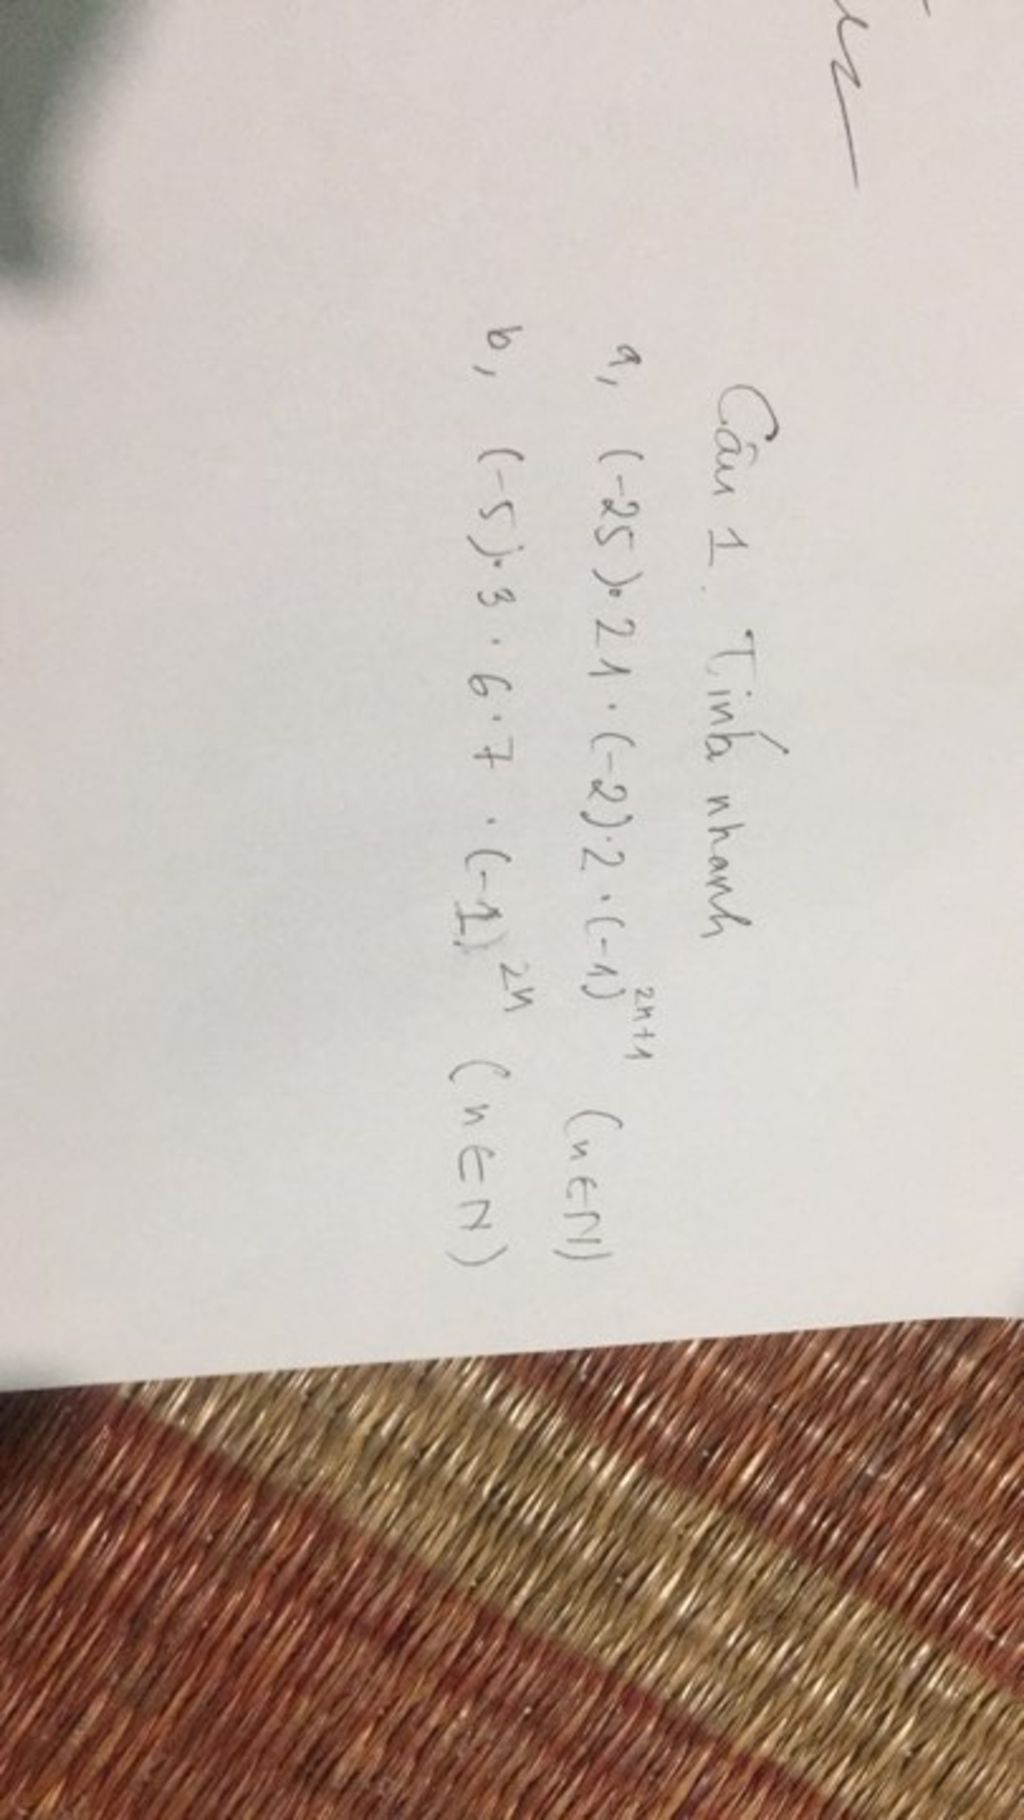 Câu 1. Tính nhanh
a, (-25).21.(-2).2.(-1)^2n+1 (n∈N)
b, (-5).3.6.7.(-1)^2n (n∈N)